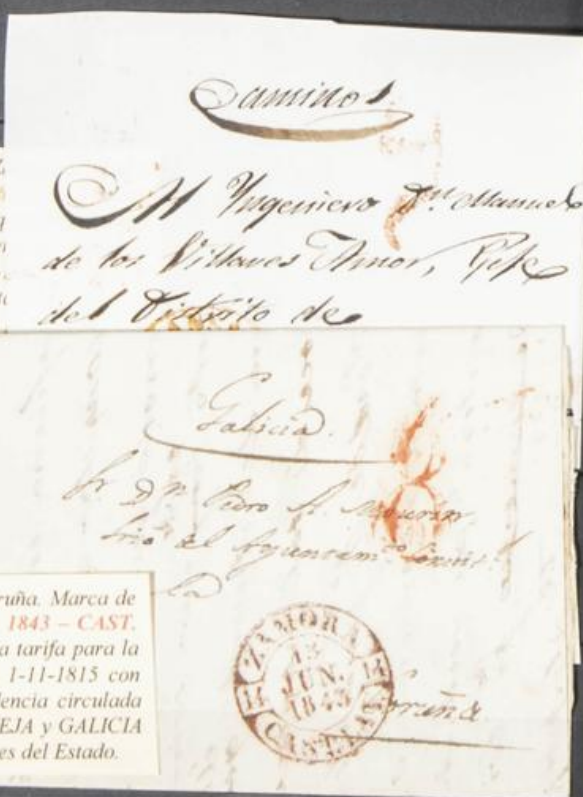 Caminos
Al Ingeniero Dn. Manuel
de los Villares Amor, Gefe
del Distrito de
Galicia
Sr. Dn. Pedro A.
Srio. del Ayuntamto.
la
Coruña
ZAMORA
13
JUN.
1843
CAST. LA V.
ruña. Marca de
1843 – CAST.
a tarifa para la
1-11-1815 con
encia circulada
EJA y GALICIA
es del Estado.